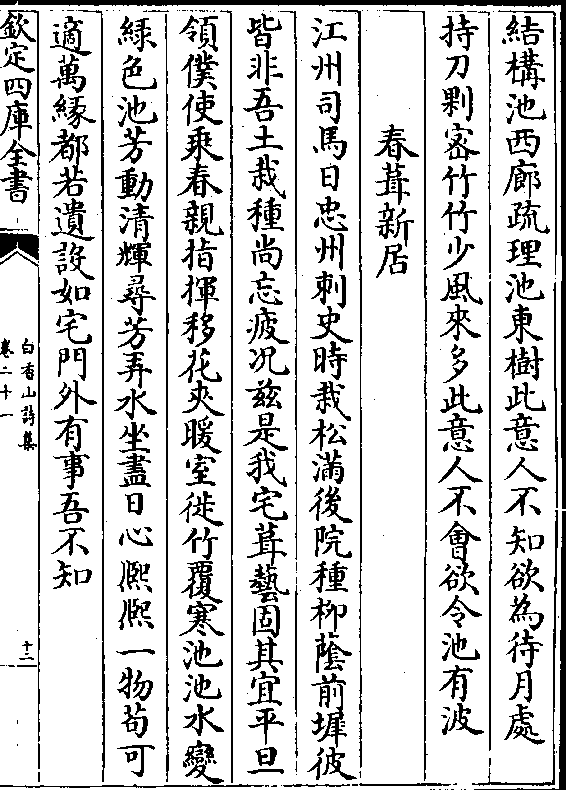 結構池西廊疏理池東樹此意人不知欲為待月處
持刀剿宻竹竹少風來多此意人不㑹欲令池有波
春葺新居
江州司馬日忠州刺史時栽松滿後院種柳䕃前墀彼
皆非吾土栽種尚忘疲况兹是我宅葺藝固其宜平旦
領僕使乘春親指揮移花夾暖室徙竹覆寒池池水變
綠色池芳動清輝尋芳弄水坐盡日心熈熈一物苟可
適萬緣都若遺設如宅門外有事吾不知
欽定四庫全書
白香山詩集
卷二十一
十二